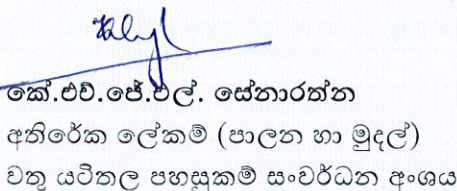 කේ.එච්.ජේ.එල්. සේනාරත්න
අතිරේක ලේකම් (පාලන හා මුදල්)
වතු යටිතල පහසුකම් සංවර්ධන අංශය